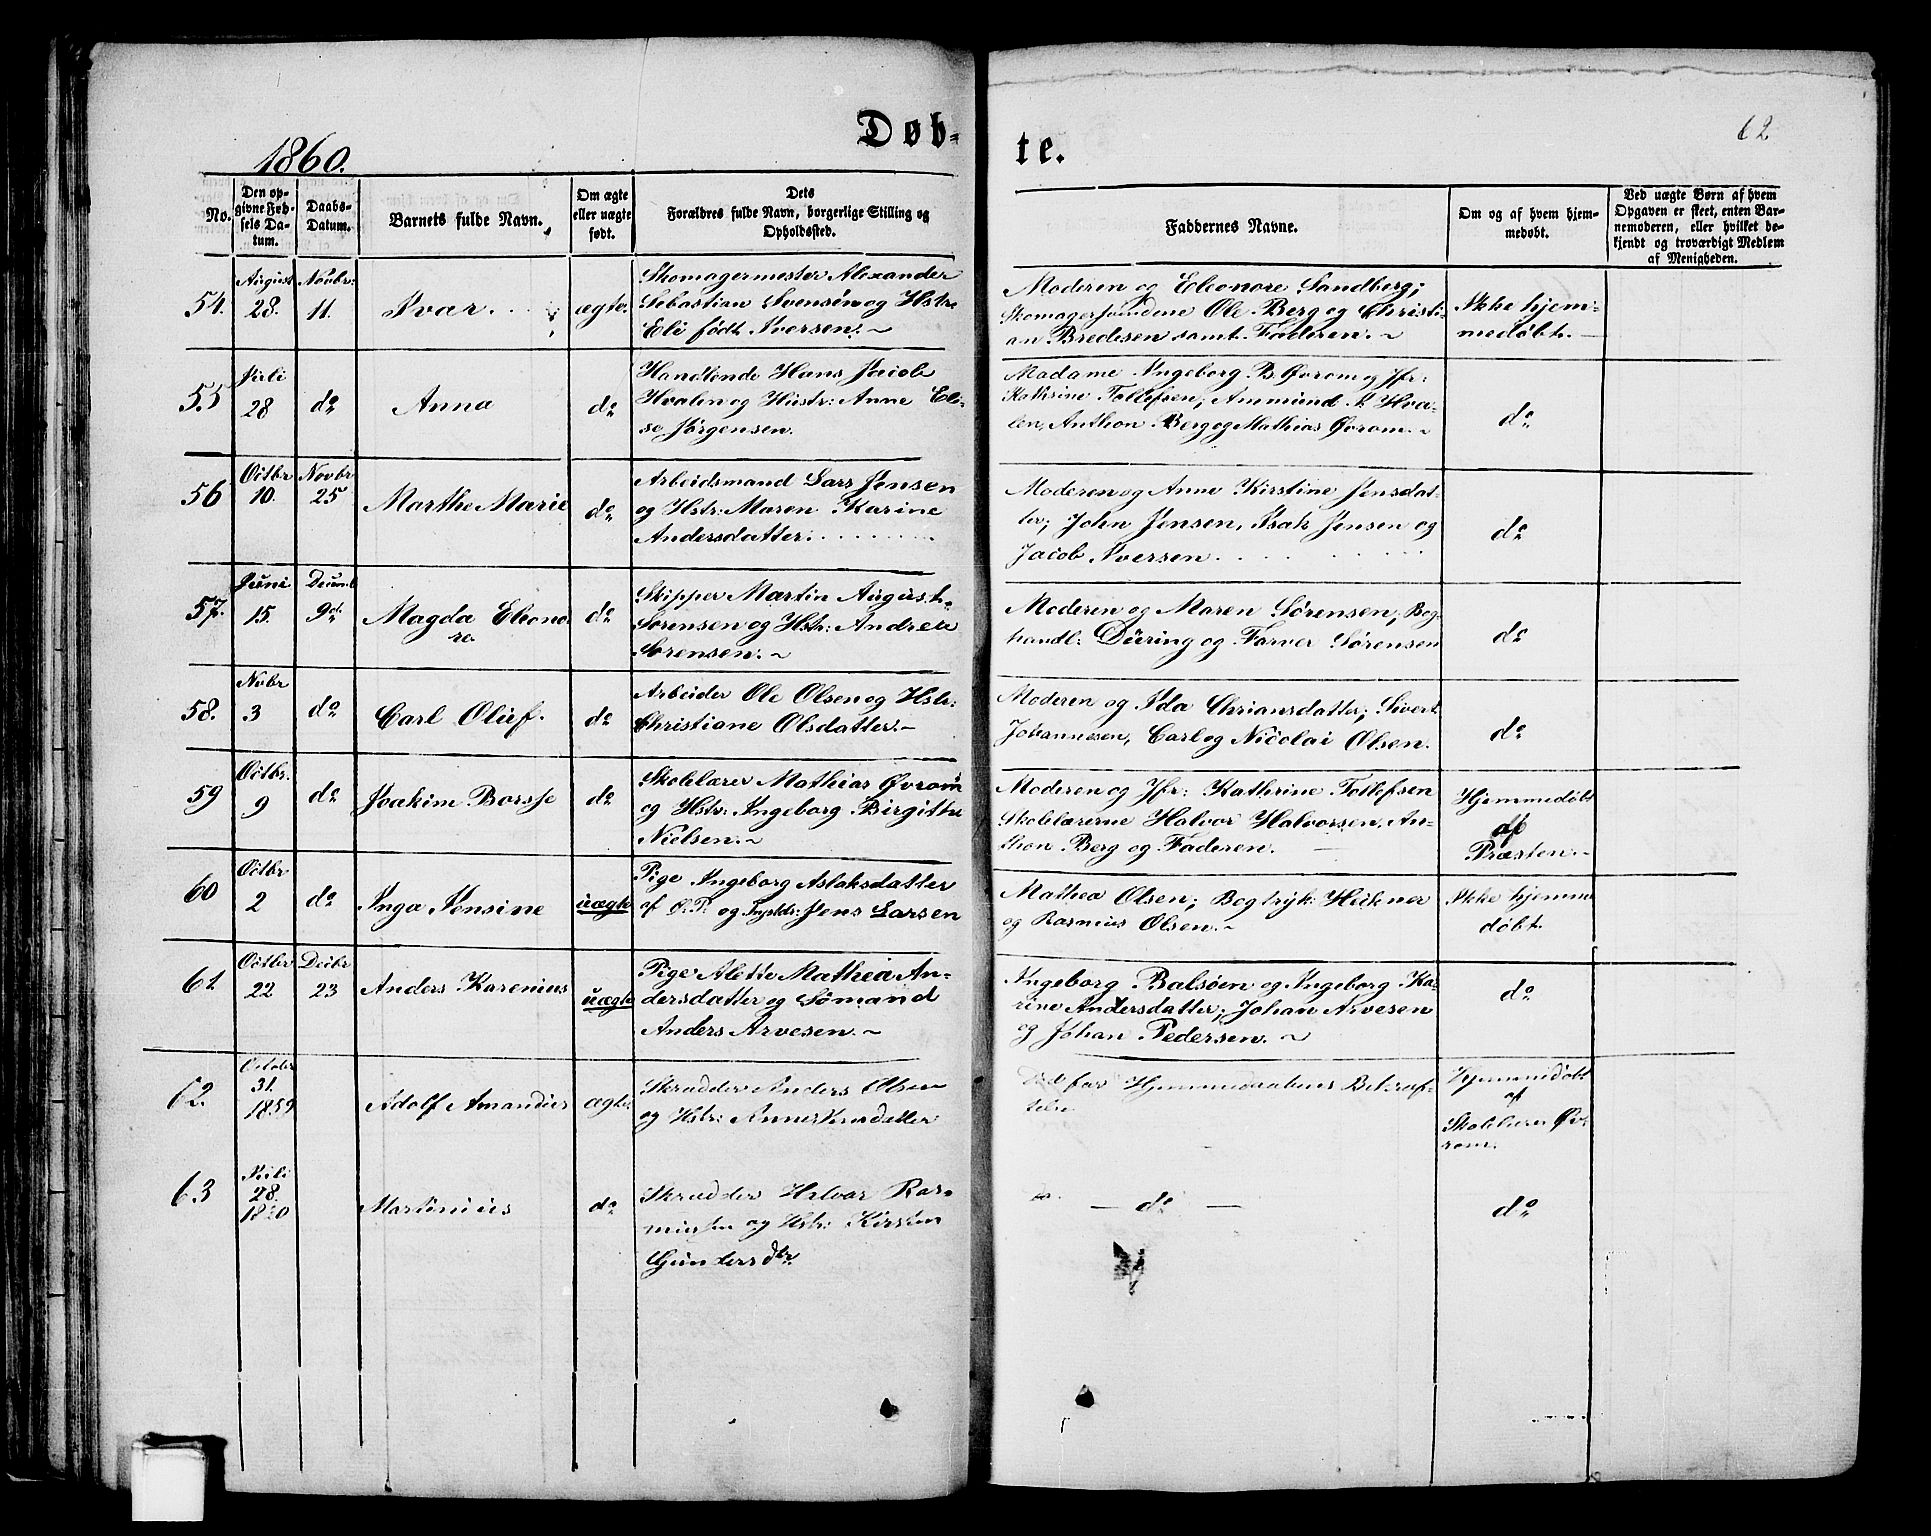 1860.
Døb-
te.
62
No.
Den op-
givne Fød-
sels Da-
tum.
Daabs-
Datum.
Barnets fulde Navn.
Om ægte
eller uægte
født.
Dets
Forældres fulde Navn, borgerlige Stilling og
Opholdssted.
Faddernes Navne.
Om og af hvem hjem-
medøbt.
Ved uægte Børn af hvem
Opgaven er skeet, enten Bar-
nemoderen, eller hvilket be-
kjendt og troværdigt Medlem
af Menigheden.
54.
August
28.
Novbr:
11.
Ivar.
ægte.
Skomagermester Alexander
Sebastian Svensén og Hstr:
Eli født Iversen. ~
Moderen og Eleonore Sandberg;
Skomagersvendene Ole Berg og Christi-
an Bredesen samt Faderen. ~
Ikke hjem-
medøbt.
55
Juli
28
do
Anna
do
Handlende Hans Jacob
Hvalen og Hustr: Anne Eli-
se Jørgensen.
Madame Ingeborg B. Øvrom og Jfr:
Kathrine Tollefsen, Ammund A. Hva-
len, Anthon Berg og Mathias Øvrom. ~
do
56
Octbr
10.
Novbr
25
Marthe Marie
do
Arbeidsmand Lars Jensen
og Hstr: Maren Karine
Andersdatter.
Moderen og Anne Kirstine Jensdat-
ter; John Jensen, Isak Jensen og
Jacob Iversen
do
57.
Juni
15.
Decemb
9de
Magda Eleono-
ra
do
Skipper Martin August
Sørensen og Hstr: Andrea
Sørensen. ~
Moderen og Maren Sørensen; Bog-
handl: Düring og Farver Sørensen
do
58.
Novbr
3
do
Carl Oluf.
do
Arbeider Ole Olsen og Hstr:
Christiane Olsdatter. -
Moderen og Ida Chriansdatter; Sivert
Johannesen, Carl og Nicolai Olsen.
do
59
Octbr.
9
do
Joakim Borsse
do
Skolelærer Mathias Øvrom
og Hstr: Ingeborg Birgitte
Nielsen. ~
Moderen og Jfr: Kathrine Tollefsen
Skolelærerne Halvor Halvorsen, An-
thon Berg og Faderen.
Hjemmedøbt
af
Præsten. -
60
Octbr
2
do
Inga Jensine
uægte
Pige Ingeborg Aslaksdatter
af Ø.R. og Jens Larsen
Mathea Olsen; Bogtryk: Heitner
og Rasmus Olsen. ~
Ikke hjemme
døbt.
61
Octbr
22
Decbr
23
Anders Karenius
uægte
Pige Alette Mathea An-
dersdatter og Sømand
Anders Arvesen. ~
Ingeborg Balsøen og Ingeborg Ka-
rine Andersdatter; Johan Arvesen
og Johan Pedersen. ~
do
62.
October
31.
1859
Adolf Amandus
ægte
Skrædder Anders Olsen
og Hstr: Anne
Død før Hjemmedaabens Bekræf-
telse
Hjemmedøbt
af
Skolelærer Øv-
rom.
63
Juli
28.
1860
Martinius
do
Skrædder Halvor Ras-
mussen og Hstr: Kirsten
Gundersdtr.
- do -
do